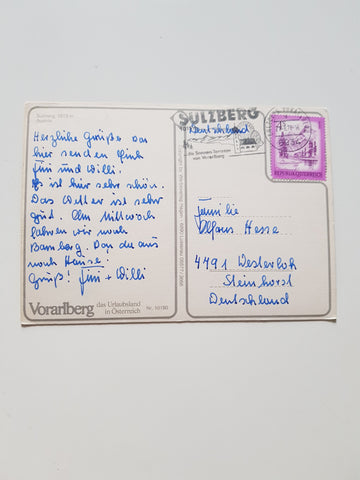 Sulzberg 1015 m
Austria
Herzliche Grüße von
hier senden Euch
Fini und Willi.
Es ist hier sehr schön.
Das Wetter ist sehr
gut. Am Mittwoch
fahren wir nach
Bamberg. Von da aus
nach Hause!
Gruß! Fini + Willi
Vorarlberg das Urlaubsland
in Österreich
Nr. 10190
SULZBERG
Deutschland
die Sonnen-Terrasse
von Vorarlberg
REPUBLIK ÖSTERREICH
Familie
Alfons Hesse
4791 Westerloh
Steinhorst
Deutschland